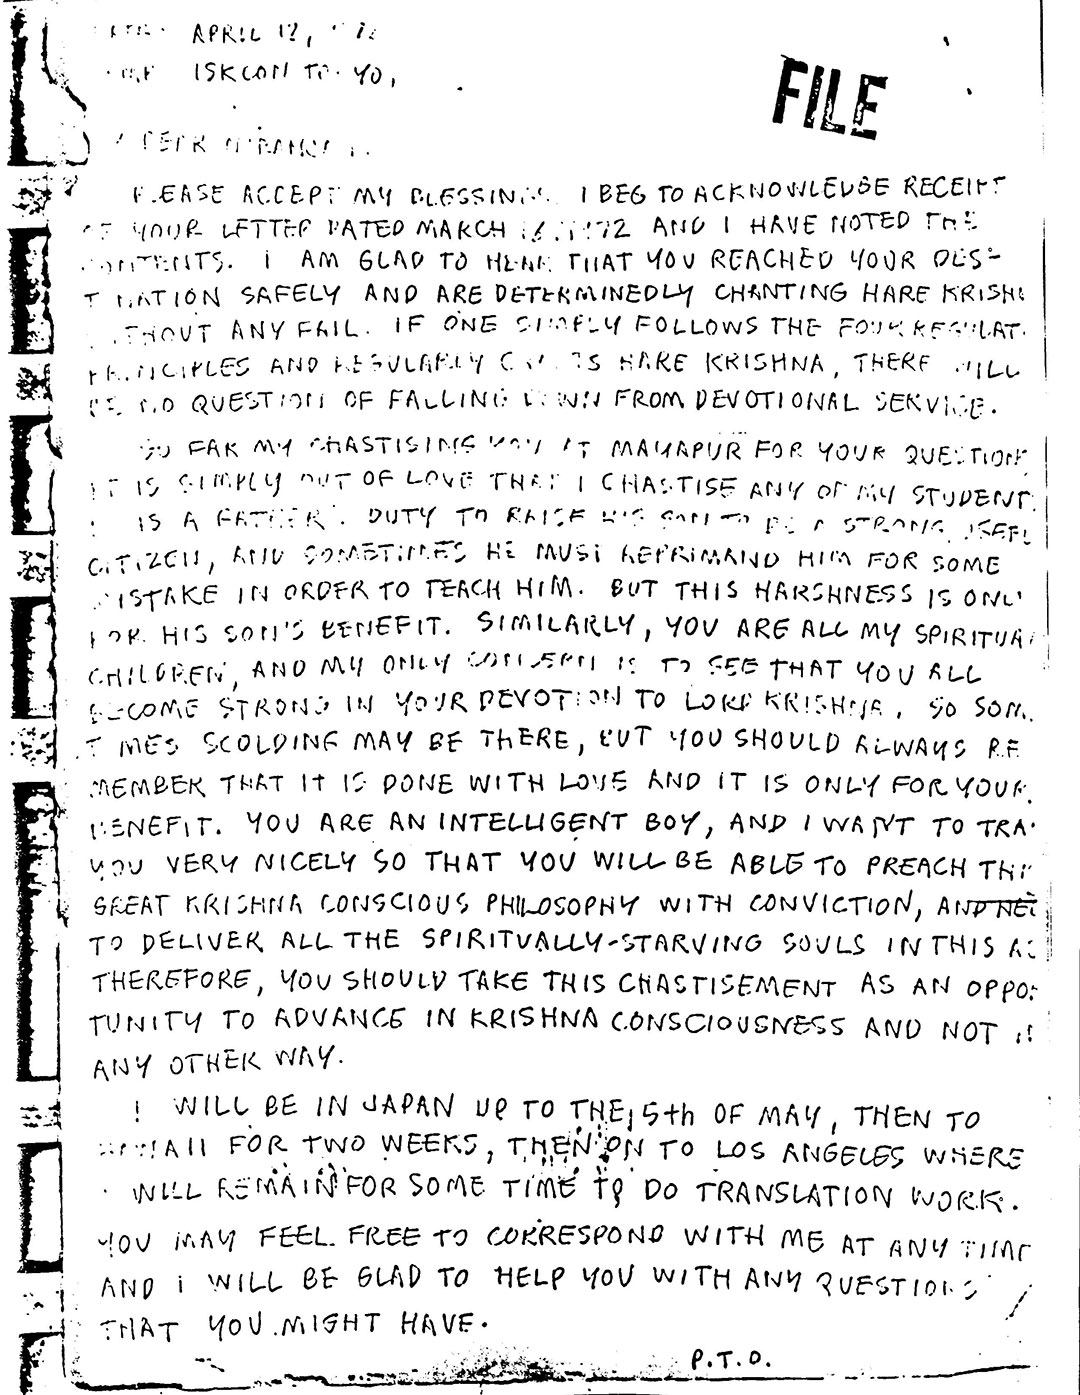 APRIL 12,
ISKCON
FILE
DEAR
PLEASE ACCEPT MY BLESSINGS. I BEG TO ACKNOWLEDGE RECEIPT
OF YOUR LETTER DATED MARCH 1972 AND I HAVE NOTED THE
CONTENTS. I AM GLAD TO HEAR THAT YOU REACHED YOUR DES-
TINATION SAFELY AND ARE DETERMINEDLY CHANTING HARE KRISHN
WITHOUT ANY FAIL. IF ONE SIMPLY FOLLOWS THE FOUR REGULAT
PRINCIPLES AND REGULARLY HARE KRISHNA, THERE WILL
BE NO QUESTION OF FALLING DOWN FROM DEVOTIONAL SERVICE.
SO FAR MY CHASTISING YOU AT MAYAPUR FOR YOUR QUESTION
IT IS SIMPLY OUT OF LOVE THAT I CHASTISE ANY OF MY STUDENT
IS A FATHER'S DUTY TO RAISE HIS SON TO BE A STRONG, USEFUL
CITIZEN, AND SOMETIMES HE MUST REPRIMAND HIM FOR SOME
MISTAKE IN ORDER TO TEACH HIM. BUT THIS HARSHNESS IS ONLY
FOR HIS SON'S BENEFIT. SIMILARLY, YOU ARE ALL MY SPIRITUAL
CHILDREN, AND MY ONLY CONCERN IS TO SEE THAT YOU ALL
BECOME STRONG IN YOUR DEVOTION TO LORD KRISHNA. SO SOM
TIMES SCOLDING MAY BE THERE, BUT YOU SHOULD ALWAYS RE
MEMBER THAT IT IS DONE WITH LOVE AND IT IS ONLY FOR YOUR
BENEFIT. YOU ARE AN INTELLIGENT BOY, AND I WANT TO TRA
YOU VERY NICELY SO THAT YOU WILL BE ABLE TO PREACH THI
GREAT KRISHNA CONSCIOUS PHILOSOPHY WITH CONVICTION, AND
TO DELIVER ALL THE SPIRITUALLY-STARVING SOULS IN THIS
THEREFORE, YOU SHOULD TAKE THIS CHASTISEMENT AS AN OPPOR
TUNITY TO ADVANCE IN KRISHNA CONSCIOUSNESS AND NOT IN
ANY OTHER WAY.
I WILL BE IN JAPAN UP TO THE 15th OF MAY, THEN TO
HAWAII FOR TWO WEEKS, THEN ON TO LOS ANGELES WHERE
WILL REMAIN FOR SOME TIME TO DO TRANSLATION WORK.
YOU MAY FEEL FREE TO CORRESPOND WITH ME AT ANY TIME
AND I WILL BE GLAD TO HELP YOU WITH ANY QUESTIONS
THAT YOU MIGHT HAVE.
P.T.O.